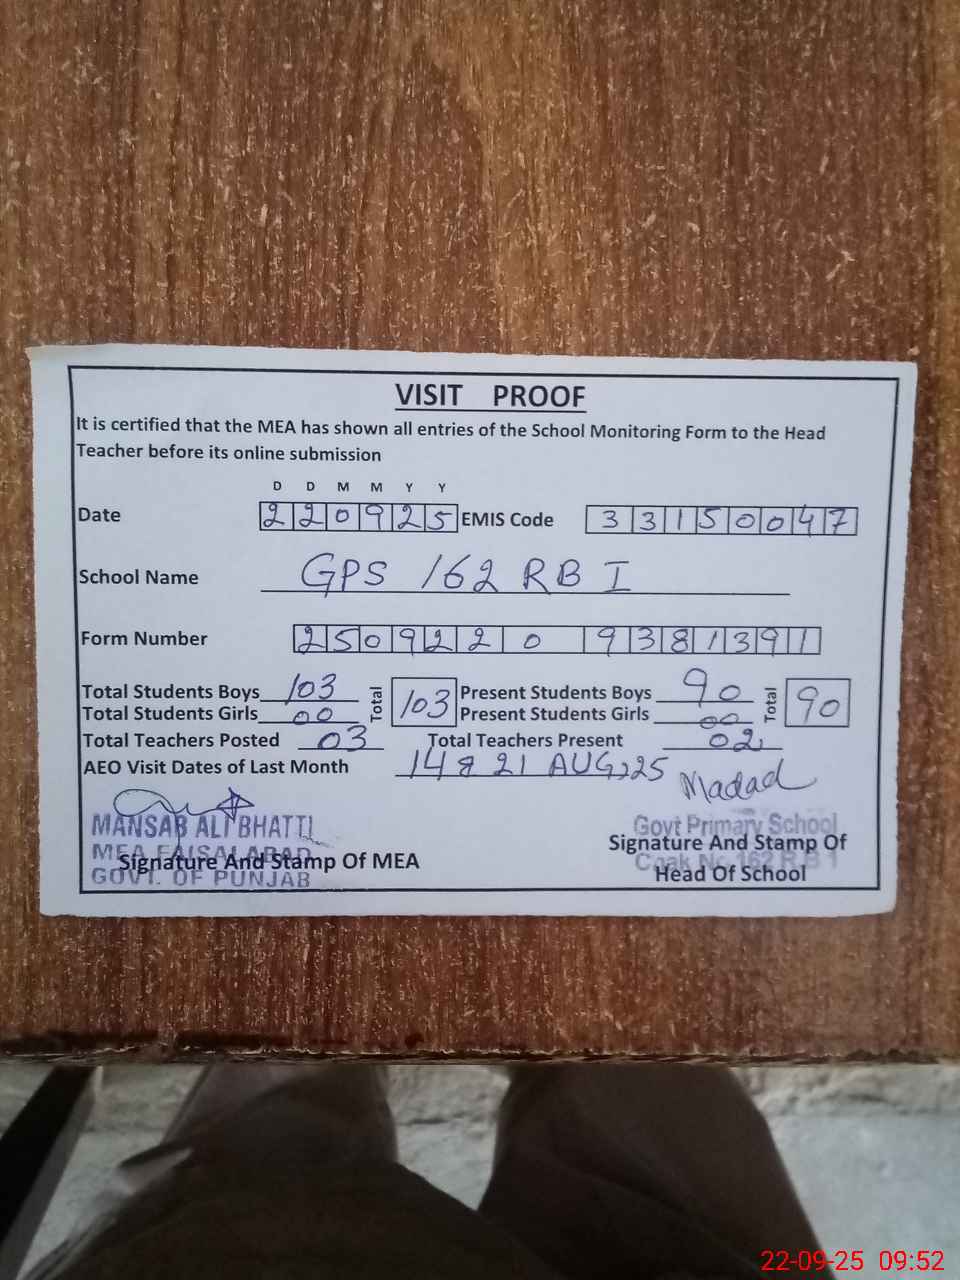 VISIT PROOF
It is certified that the MEA has shown all entries of the School Monitoring Form to the Head
Teacher before its online submission
D D M M Y Y
Date 220925 EMIS Code 33150047
School Name GPS 162 RB I
Form Number 2509220 9381391
Total Students Boys 103 Total 103 Present Students Boys 90 Total 90
Total Students Girls 00 Present Students Girls 00
Total Teachers Posted 03 Total Teachers Present 02
AEO Visit Dates of Last Month 14 & 21 AUG,25
Madad
MANSAB ALI BHATTI
MEA FAISALABAD
GOVT. OF PUNJAB
Signature And Stamp Of MEA
Govt Primary School
Chak No 162 R.B 1
Signature And Stamp Of
Head Of School
22-09-25 09:52